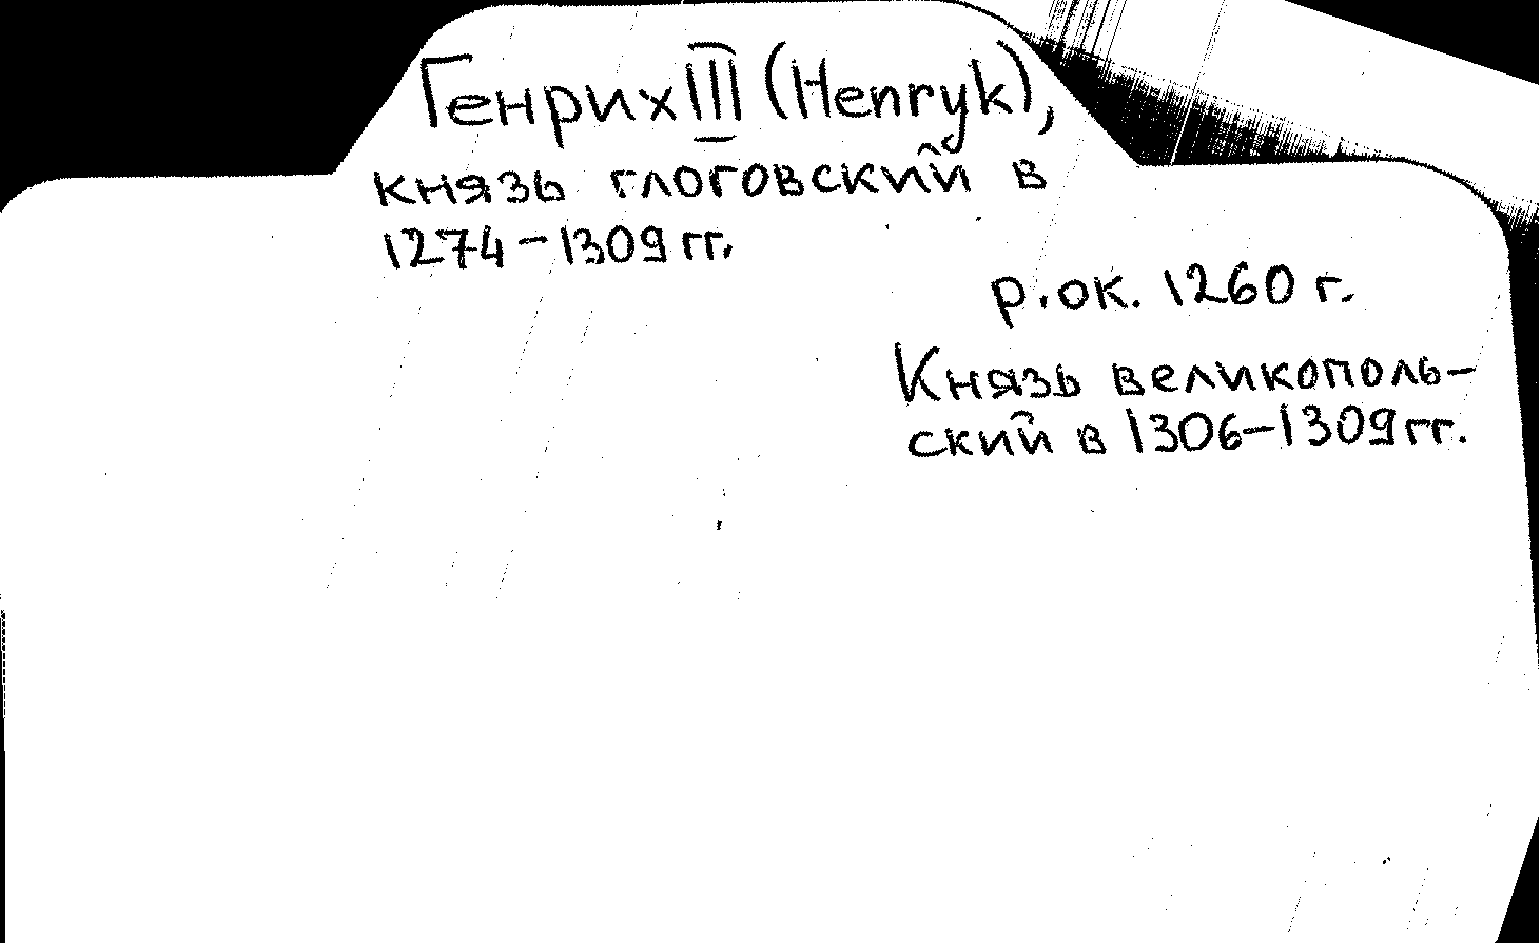 Генрих III (Henryk),
князь глоговский в
1274-1309 гг.
р. ок. 1260 г.
Князь великополь-
ский в 1306-1309 гг.